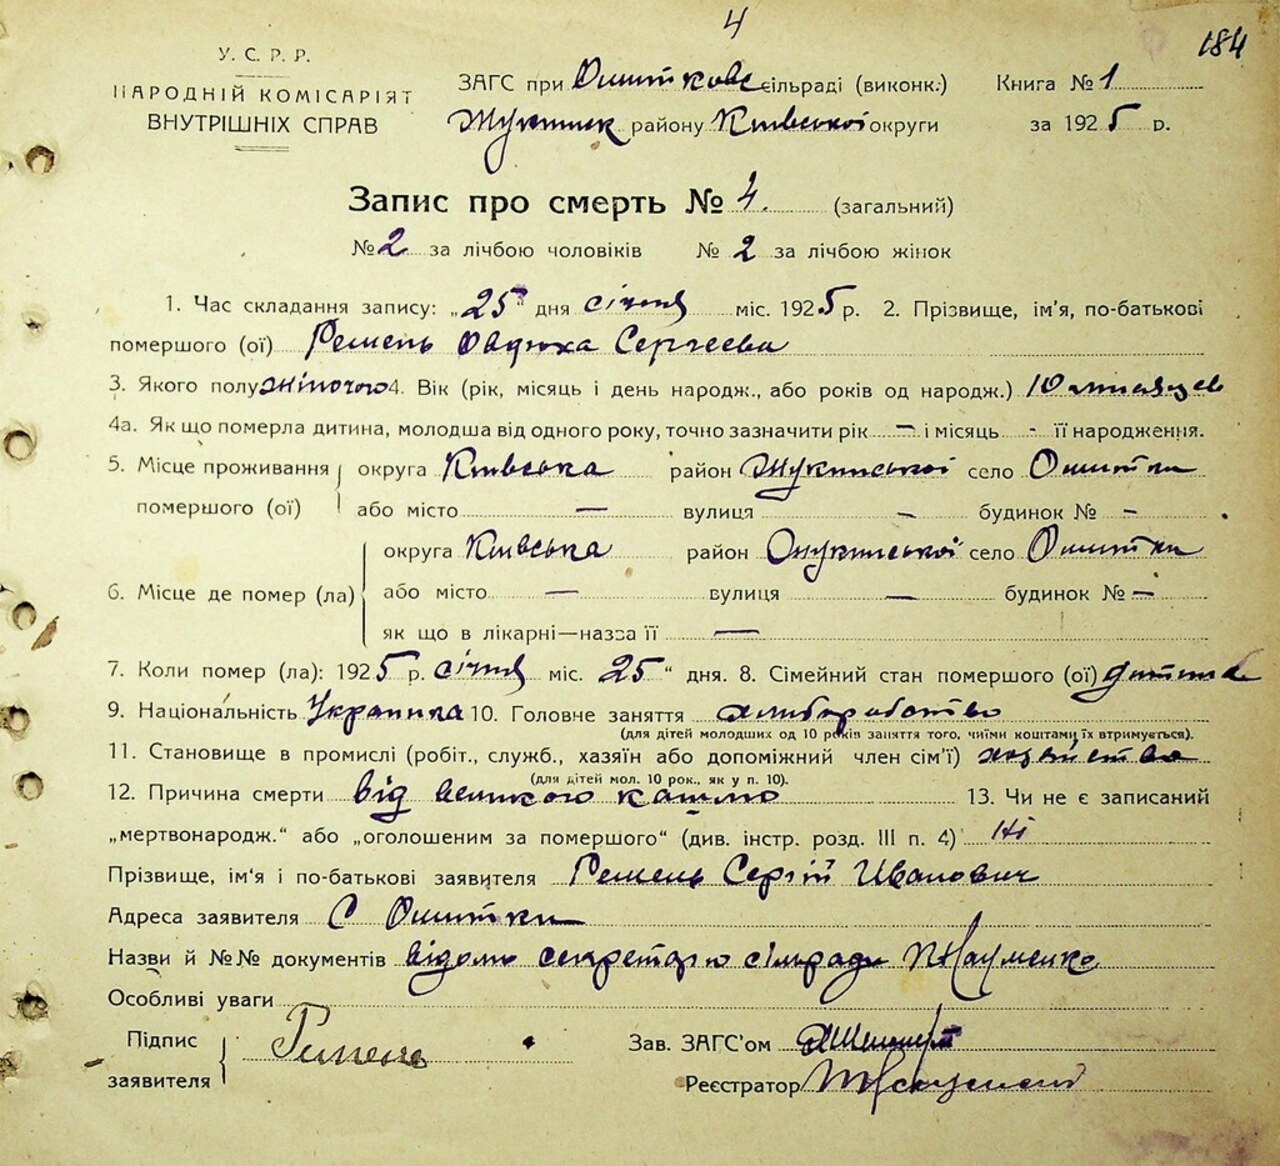 4
184
У. С. Р. Р.
НАРОДНІЙ КОМІСАРІЯТ
ВНУТРІШНІХ СПРАВ
ЗАГС при Ошитковс сільраді (виконк.) Книга № 1
району Київської округи за 1925 р.
Запис про смерть № 4. (загальний)
№ 2 за лічбою чоловіків № 2 за лічбою жінок
1. Час складання запису: „25" дня січня міс. 1925 р. 2. Прізвище, ім'я, по-батькові
помершого (ої) Ремень Овдюха Сергеева
3. Якого полу жіночого 4. Вік (рік, місяць і день народж., або років од народж.) 10 місяцев
4а. Як що померла дитина, молодша від одного року, точно зазначити рік — і місяць - її народження.
5. Місце проживання округа Київська район Жукинської село Ошитки
помершого (ої) або місто — вулиця — будинок № —
округа Київська район Жукинської село Ошитки
6. Місце де помер (ла) або місто — вулиця — будинок № —
як що в лікарні—назва її —
7. Коли помер (ла): 1925 р. січня міс. 25" дня. 8. Сімейний стан помершого (ої) дитина
9. Національність Українка 10. Головне заняття хліборобство
(для дітей молодших од 10 років заняття того, чиїми коштами їх втримується).
11. Становище в промислі (робіт., служб., хазяїн або допоміжний член сім'ї)
(для дітей мол. 10 рок., як у п. 10).
12. Причина смерти від великого кашлю 13. Чи не є записаний
„мертвонародж." або „оголошеним за помершого" (див. інстр. розд. III п. 4) Ні
Прізвище, ім'я і по-батькові заявителя Ремень Сергій Иванович
Адреса заявителя С Ошитки
Назви й №№ документів відомо секретарю сільради Науменко
Особливі уваги
Підпис Ремень Зав. ЗАГС'ом
заявителя Реєстратор Науменко